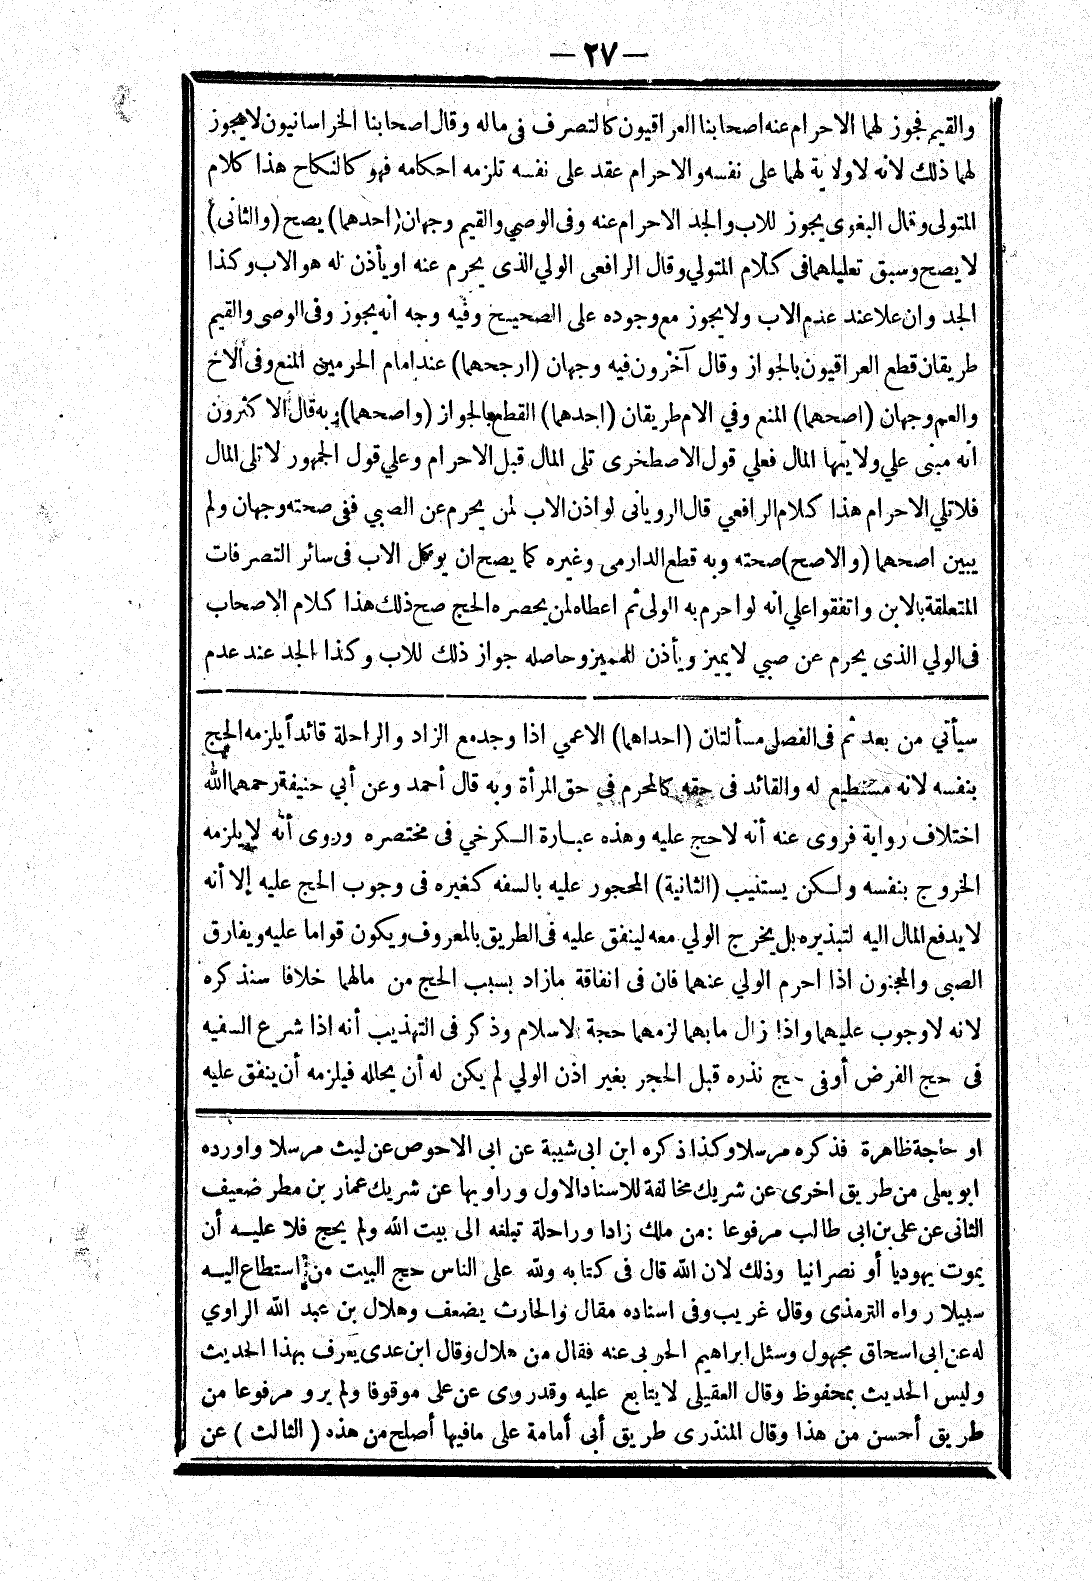 — ٢٧ —
والقيم فجوز لهما الاحرام عنه اصحابنا العراقيون كالتصرف فى ماله وقال اصحابنا الخراسانيون لا يجوز
لهما ذلك لانه لا ولاية لهما على نفسه والاحرام عقد على نفسه تلزمه احكامه فهو كالنكاح هذا كلام
المتولى وقال البغوى يجوز للاب والجد الاحرام عنه وفى الوصي والقيم وجهان (احدهما) يصح (والثانى)
لا يصح وسبق تعليلهما فى كلام المتولي وقال الرافعى الولي الذى يحرم عنه او يأذن له هو الاب وكذا
الجد وان علا عند عدم الاب ولا يجوز مع وجوده على الصحيح وفيه وجه انه يجوز وفى الوصى والقيم
طريقان قطع العراقيون بالجواز وقال آخرون فيه وجهان (ارجحهما) عند امام الحرمين المنع وفى الاخ
والعم وجهان (اصحهما) المنع وفي الام طريقان (احدهما) القطع بالجواز (واصحهما) وبه قال الاكثرون
انه مبنى علي ولايتها المال فعلي قول الاصطخرى تلى المال قبل الاحرام وعلي قول الجمهور لا تلى المال
فلا تلي الاحرام هذا كلام الرافعي قال الرويانى لو اذن الاب لمن يحرم عن الصبي ففى صحته وجهان ولم
يبين اصحهما (والاصح) صحته وبه قطع الدارمى وغيره كما يصح ان يوكل الاب فى سائر التصرفات
المتعلقة بالابن واتفقوا علي انه لو احرم به الولى ثم اعطاه لمن يحضره الحج صح ذلك هذا كلام الاصحاب
فى الولي الذى يحرم عن صبي لا يميز ويأذن للمميز وحاصله جواز ذلك للاب وكذا الجد عند عدم
سيأتي من بعد ثم فى الفصل مسألتان (احداهما) الاعمي اذا وجد مع الزاد والراحلة قائداً يلزمه الحج
بنفسه لانه مستطيع له والقائد فى حقه كالمحرم في حق المرأة وبه قال أحمد وعن أبي حنيفة رحمهما الله
اختلاف رواية فروى عنه أنه لا حج عليه وهذه عبارة الكرخي فى مختصره وروى أنه لا يلزمه
الخروج بنفسه ولكن يستنيب (الثانية) المحجور عليه بالسفه كغيره فى وجوب الحج عليه إلا أنه
لا يدفع المال اليه لتبذيره بل يخرج الولي معه لينفق عليه فى الطريق بالمعروف ويكون قواما عليه ويفارق
الصبى والمجنون اذا احرم الولي عنهما فان فى انفاقة مازاد بسبب الحج من مالهما خلافا سنذكره
لانه لا وجوب عليهما واذا زال مابهما لزمهما حجة الاسلام وذكر فى التهذيب أنه اذا شرع السفيه
فى حج الفرض أو فى حج نذره قبل الحجر بغير اذن الولي لم يكن له أن يحلله فيلزمه أن ينفق عليه
او حاجة ظاهرة فذكره مرسلا وكذا ذكره ابن ابى شيبة عن ابى الاحوص عن ليث مرسلا واورده
ابو يعلى من طريق اخرى عن شريك مخالفة للاسناد الاول وراويها عن شريك عمار بن مطر ضعيف
الثانى عن على بن ابى طالب مرفوعا : من ملك زادا وراحلة تبلغه الى بيت الله ولم يحج فلا عليه أن
يموت يهوديا أو نصرانيا وذلك لان الله قال فى كتابه ولله على الناس حج البيت من استطاع اليه
سبيلا رواه الترمذى وقال غريب وفى اسناده مقال والحارث يضعف وهلال بن عبد الله الراوي
له عن ابى اسحاق مجهول وسئل ابراهيم الحربى عنه فقال من هلال وقال ابن عدى يعرف بهذا الحديث
وليس الحديث بمحفوظ وقال العقيلى لا يتابع عليه وقد روى عن على موقوفا ولم يرو مرفوعا من
طريق أحسن من هذا وقال المنذرى طريق أبى أمامة على مافيها أصلح من هذه ( الثالث ) عن